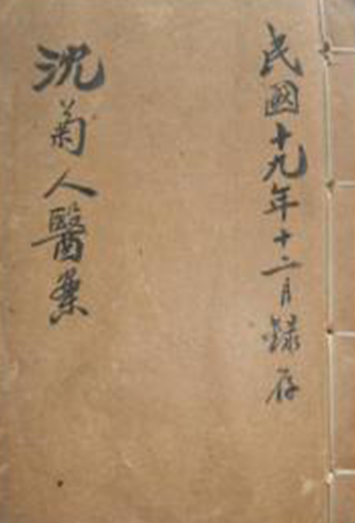 民國十九年十二月錄存
沈菊人醫案